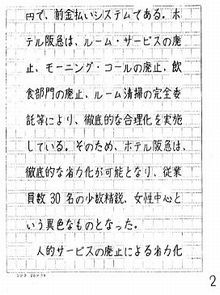 円で、前金払いシステムである。ホ
テル阪急は、ルーム・サービスの廃
止、モーニング・コールの廃止、飲
食部門の廃止、ルーム清掃の完全委
託等により、徹底的な合理化を実施
している。そのため、ホテル阪急は、
徹底的な省力化が可能となり、従業
員数30名の少数精鋭、女性中心と
いう異色なものとなった。
人的サービスの廃止による省力化
2